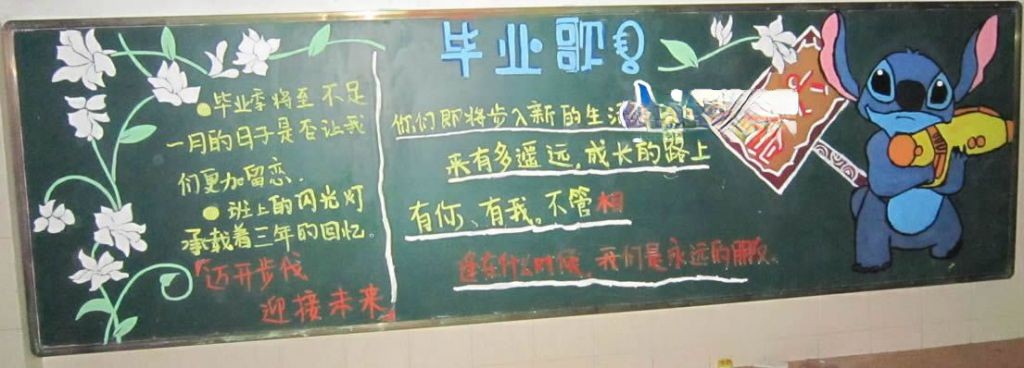 毕业歌
毕业季将至 不足
一月的日子是否让我
们更加留恋.
班上的闪光灯
承载着三年的回忆。
迈开步伐
迎接未来
你们即将步入新的生活
来有多遥远,成长的路上
有你、有我。不管相
逢在什么时候,我们是永远的朋友。